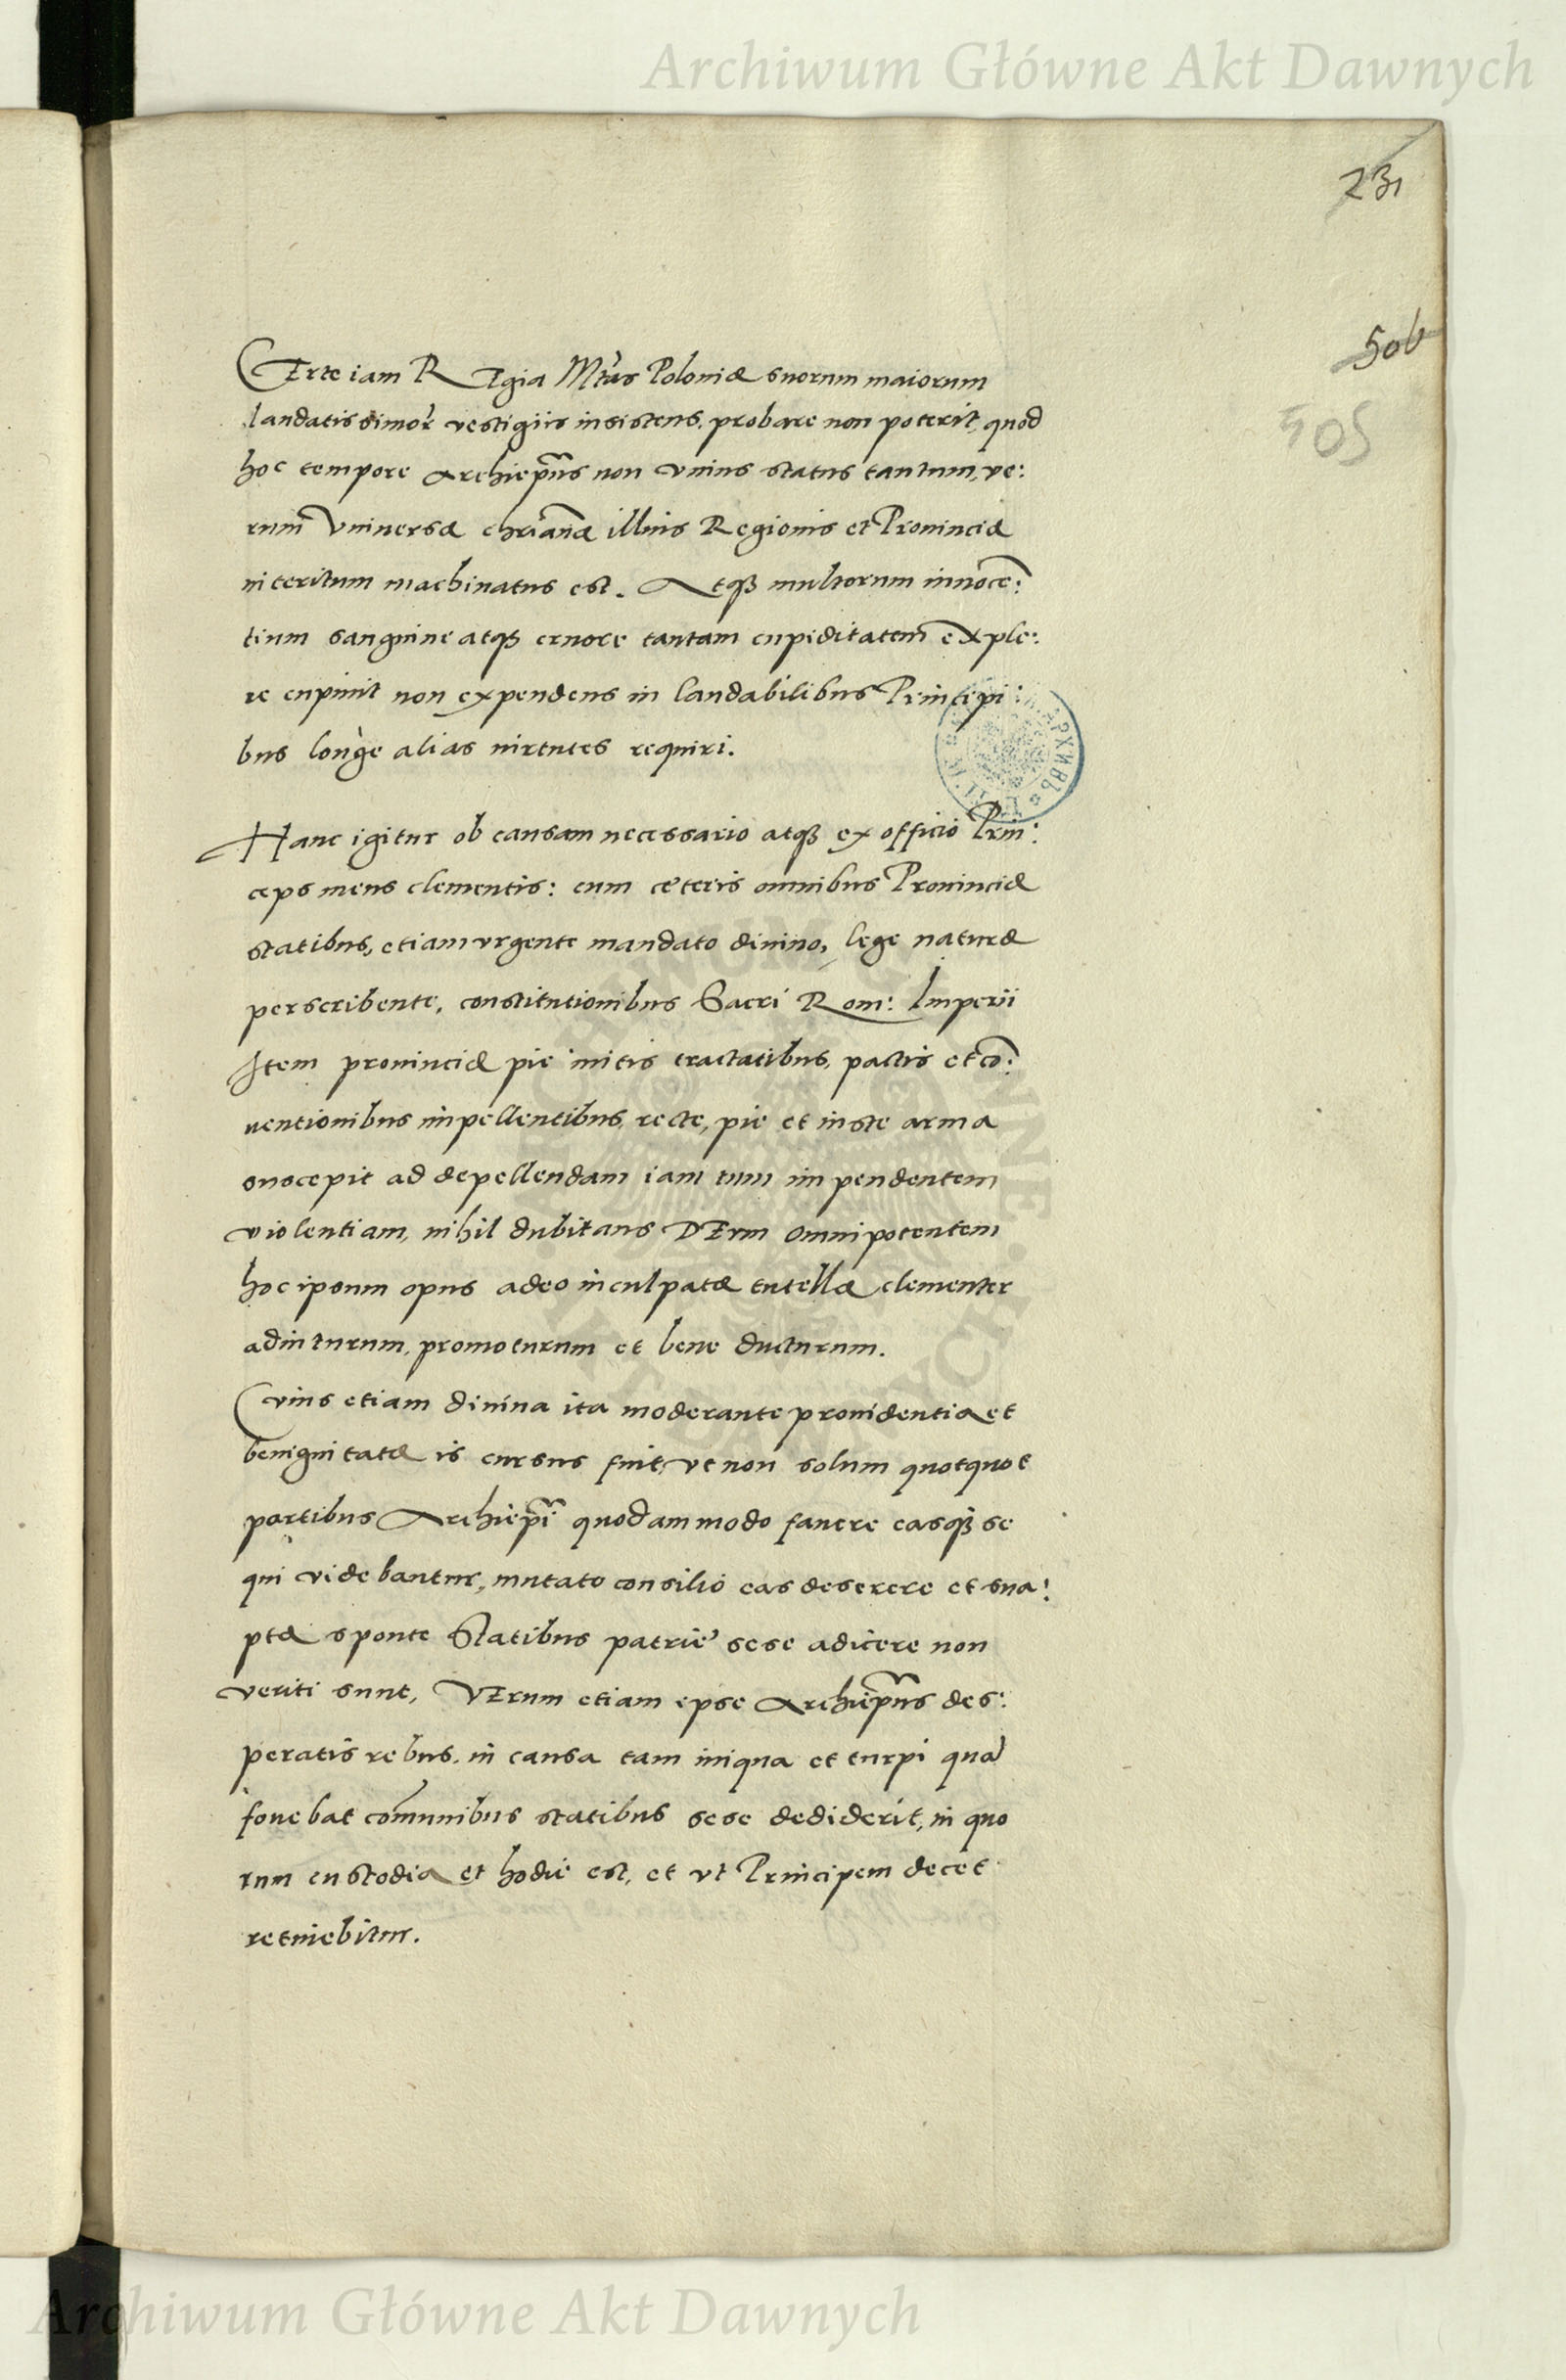 Archiwum Główne Akt Dawnych
231
506
505
CErte iam REgia Mtas Poloniæ suorum maiorum
laudatissimor vestigiis insistens, probare non poterit, quod
hoc tempore Archiepūs non vnius status tantum, ve:
rum Vniuersæ chrianæ illius Regionis et Prouinciæ
interitum machinatus est. Atqȝ multorum innoce:
tium sanguine atqȝ cruore tantam cupiditatem explé:
re cupiuit non expendens in laudabilibus Principi:
bus longè alias uirtutes requiri.
Hanc igitur ob causam necessario atqȝ ex officio Prin:
ceps meus clementis: cum cæteris omnibus Prouinciæ
statibus, etiam vrgente mandato diuino, lege naturæ
perscribente, constitutionibus Sacri Rom: Imperii
Item prouinciæ pie initis tractatibus, pactis et cō:
uentionibus impellentibus, recte, pie et iuste arma
suscepit ad depellendam iam tum impendentem
violentiam, nihil dubitans DEum omnipotentem
hoc ipsum opus adeo inculpatæ tutellæ clementer
adiuturum, promoturum et bene ducturum.
Cuius etiam diuina ita moderante prouidentia et
benignitatæ is cursus fuit, vt non solum quotquot
partibus Archiepī quodammodo fauere easqȝ se
qui videbantur, mutato consilio eas deserere et sua:
ptæ sponte Statibus patrie sese adicere non
veriti sunt, VErum etiam epse Archiepūs des:
peratis rebus, in causa tam iniqua et turpi quā
fouebat comunibus statibus sese dediderit, in quo
rum custodia et hodie est, et vt Principem decet
retinebitur.
Archiwum Główne Akt Dawnych